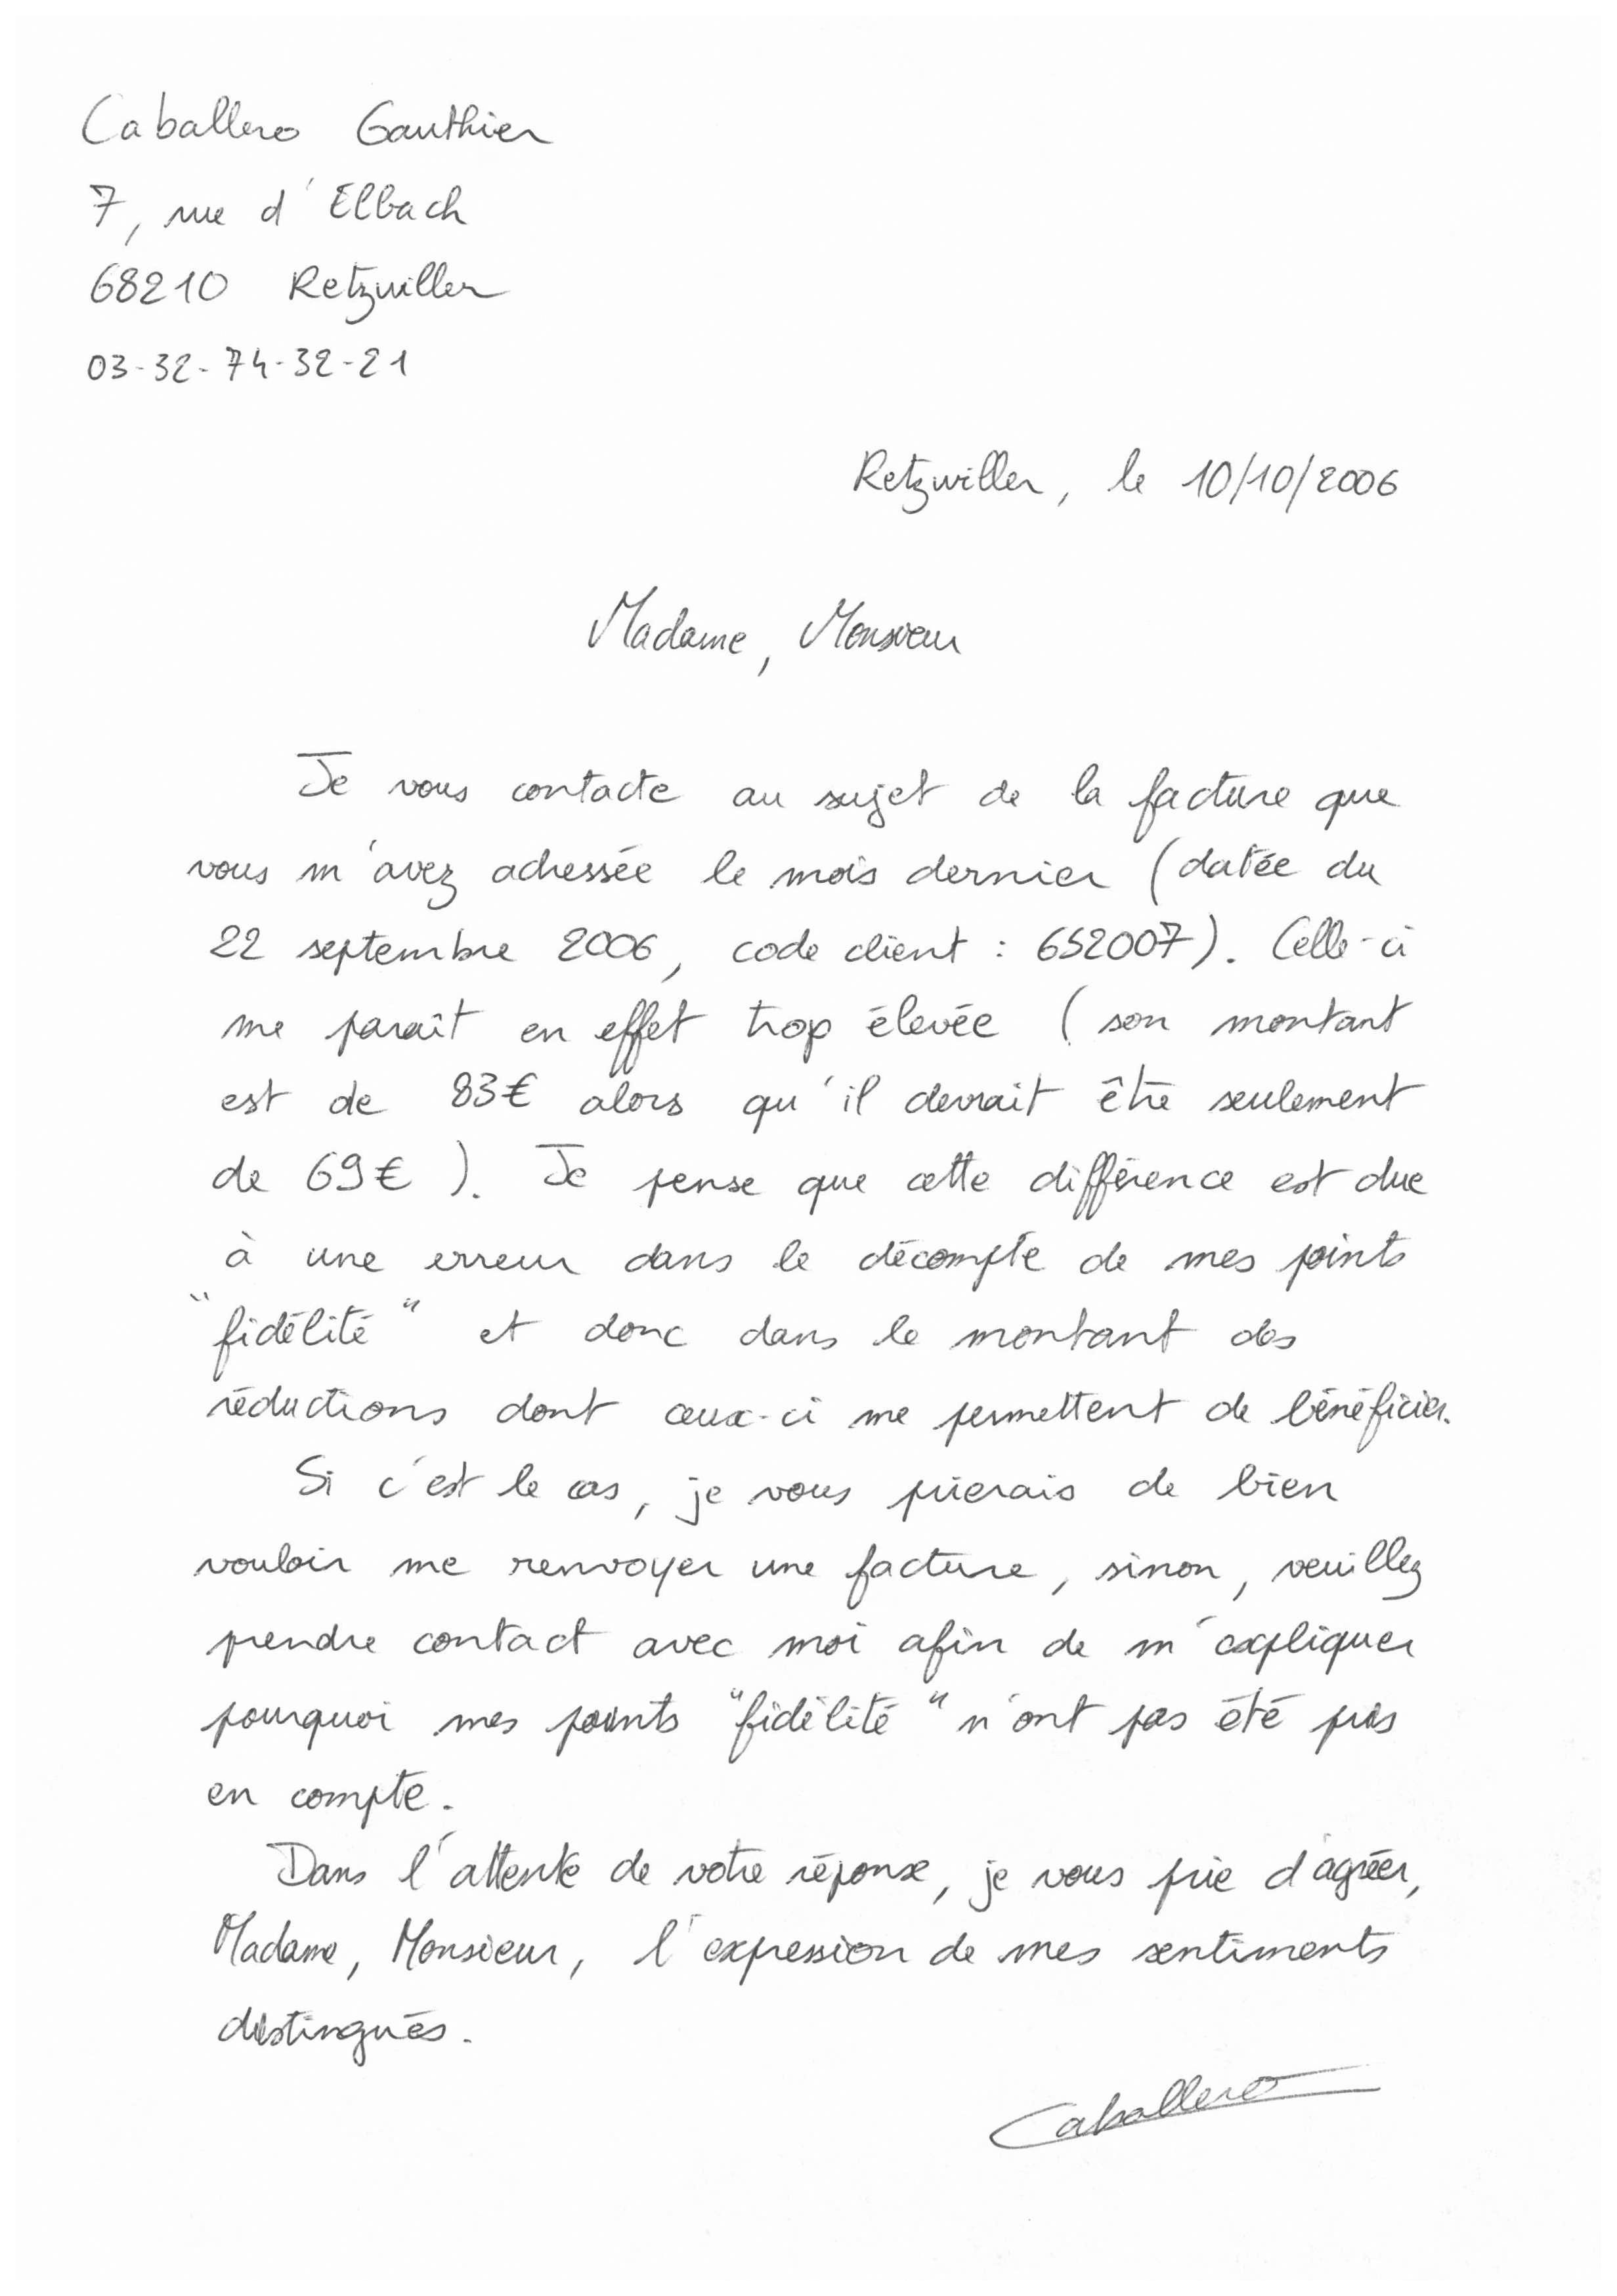 Caballero Gauthier
7, rue d'Elbach
68210 Retzwiller
03-32-74-32-21
Retzwiller, le 10/10/2006
Madame, Monsieur
Je vous contacte au sujet de la facture que
vous m'avez adressée le mois dernier (datée du
22 septembre 2006, code client : 652007). Celle-ci
me paraît en effet trop élevée ( son montant
est de 83€ alors qu'il devrait être seulement
de 69€ ). Je pense que cette différence est due
à une erreur dans le décompte de mes points
"fidélité" et donc dans le montant des
réductions dont ceux-ci me permettent de bénéficier.
Si c'est le cas, je vous prierais de bien
vouloir me renvoyer une facture, sinon, veuillez
prendre contact avec moi afin de m'expliquer
pourquoi mes points "fidélité" n'ont pas été pris
en compte.
Dans l'attente de votre réponse, je vous prie d'agréer,
Madame, Monsieur, l'expression de mes sentiments
distingués.
Caballero